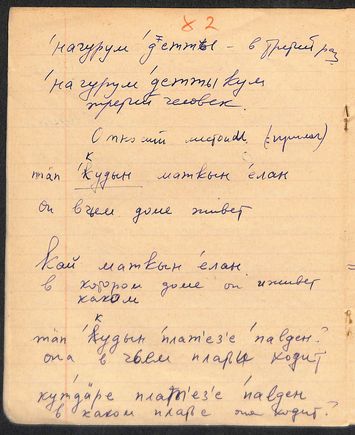 х 2
'нагурум 'д'етты – в третий раз
'нагурум 'детты кум
третий человек.
тäп 'кудын маткын 'елан
он в чьем доме живет
кай маткын 'елан
в котором доме он живет
каком
тäп 'кудын 'плат'ез'е 'павден?
она в чьем платьи ходит
кут'дäре плат'ез'е 'павден
в каком платье она ходит?